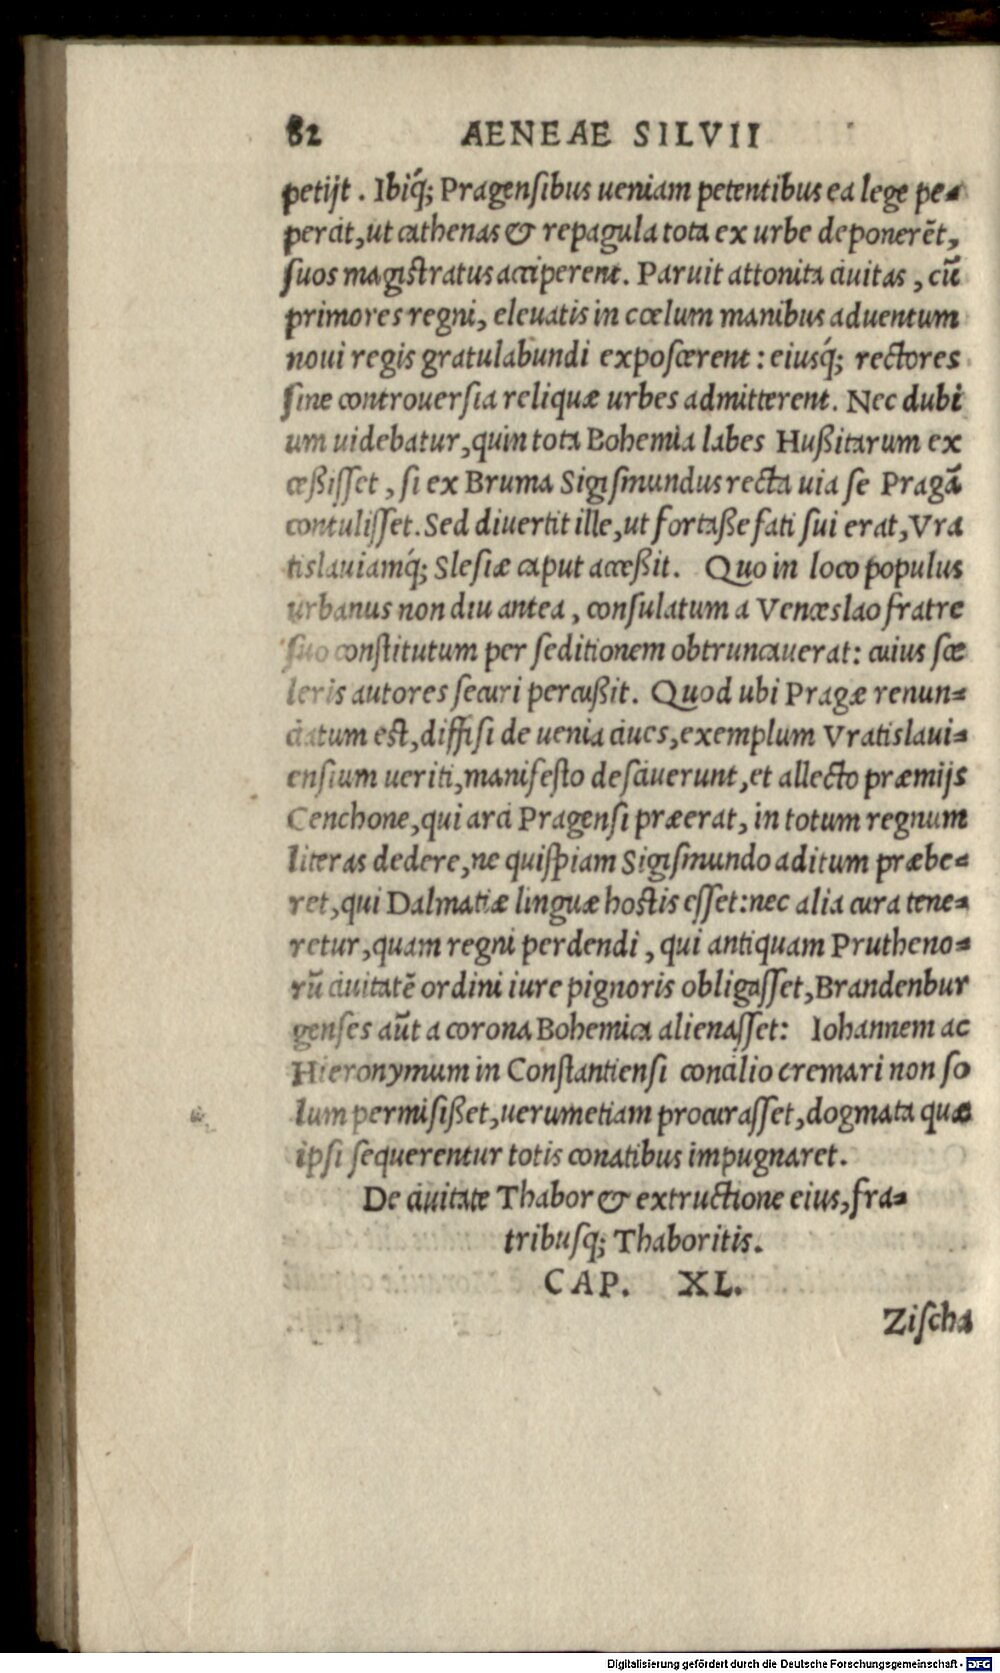 82 AENEAE SILVII
petijt. Ibiq́; Pragensibus ueniam petentibus ea lege pe-
percit, ut cathenas & repagula tota ex urbe deponerēt,
suos magistratus acciperent. Paruit attonita ciuitas, cū
primores regni, eleuatis in cœlum manibus aduentum
noui regis gratulabundi exposcerent: eiusq́; rectores
sine controuersia reliquæ urbes admitterent. Nec dubi
um uidebatur, quin tota Bohemia labes Hußitarum ex
ceßisset, si ex Bruma Sigismundus recta uia se Pragā
contulisset. Sed diuertit ille, ut fortaße fati sui erat, Vra
tislauiamq́; Slesiæ caput acceßit. Quo in loco populus
urbanus non diu antea, consulatum a Venceslao fratre
suo constitutum per seditionem obtruncauerat: cuius sce
leris autores securi percußit. Quod ubi Pragæ renun-
ciatum est, diffisi de uenia ciues, exemplum Vratislaui-
ensium ueriti, manifesto desciuerunt, et allecto præmijs
Cenchone, qui arci Pragensi præerat, in totum regnum
literas dedere, ne quispiam Sigismundo aditum præbe-
ret, qui Dalmatiæ linguæ hostis esset: nec alia cura tene-
retur, quam regni perdendi, qui antiquam Prutheno-
rū ciuitatē ordini iure pignoris obligasset, Brandenbur
genses aūt a corona Bohemica alienasset: Iohannem ac
Hieronymum in Constantiensi concilio cremari non so
lum permisißet, uerumetiam procurasset, dogmata quæ
ipsi sequerentur totis conatibus impugnaret.
De ciuitate Thabor & extructione eius, fra-
tribusq; Thaboritis.
CAP. XL.
Zischa
Digitalisierung gefördert durch die Deutsche Forschungsgemeinschaft - DFG